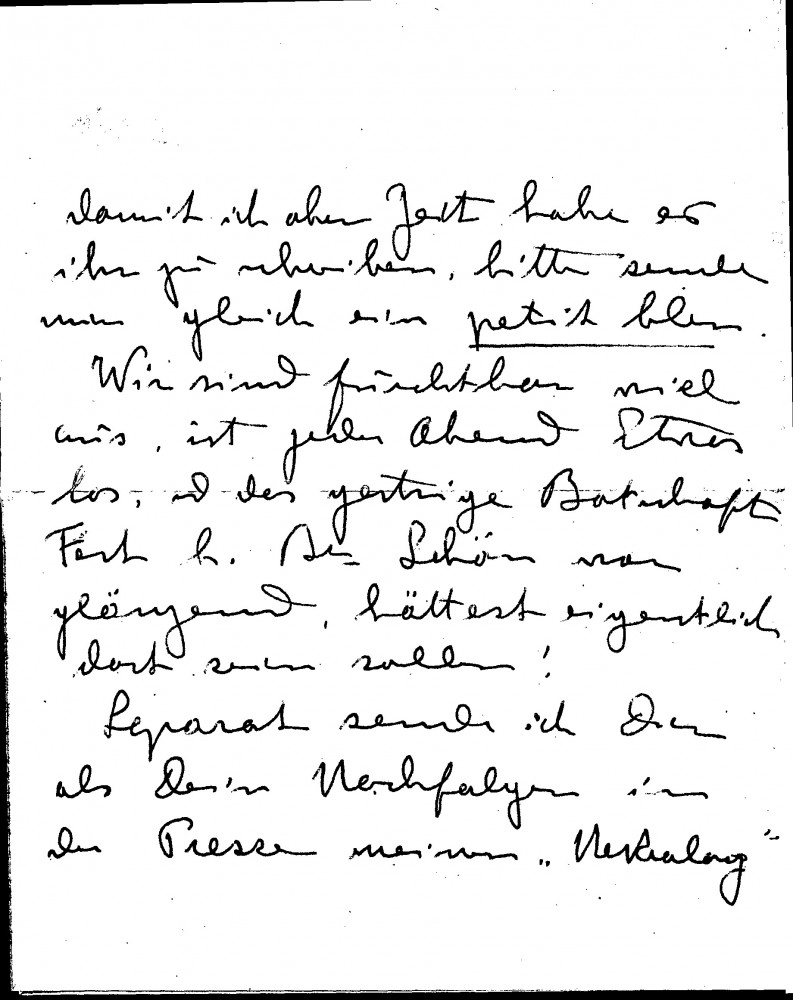 damit ich aber Zeit habe es
ihm zu schreiben, bitte sende
mir gleich ein petit bleu.
Wir sind furchtbar viel
aus, ist jeden Abend Etwas
los, u das gestrige Botschaft
Fest b. Schön war
glänzend, hättest eigentlich
dort sein sollen!
Separat sende ich Dir
als Dein Nachfolger in
der Presse meinen „Nekrolog"